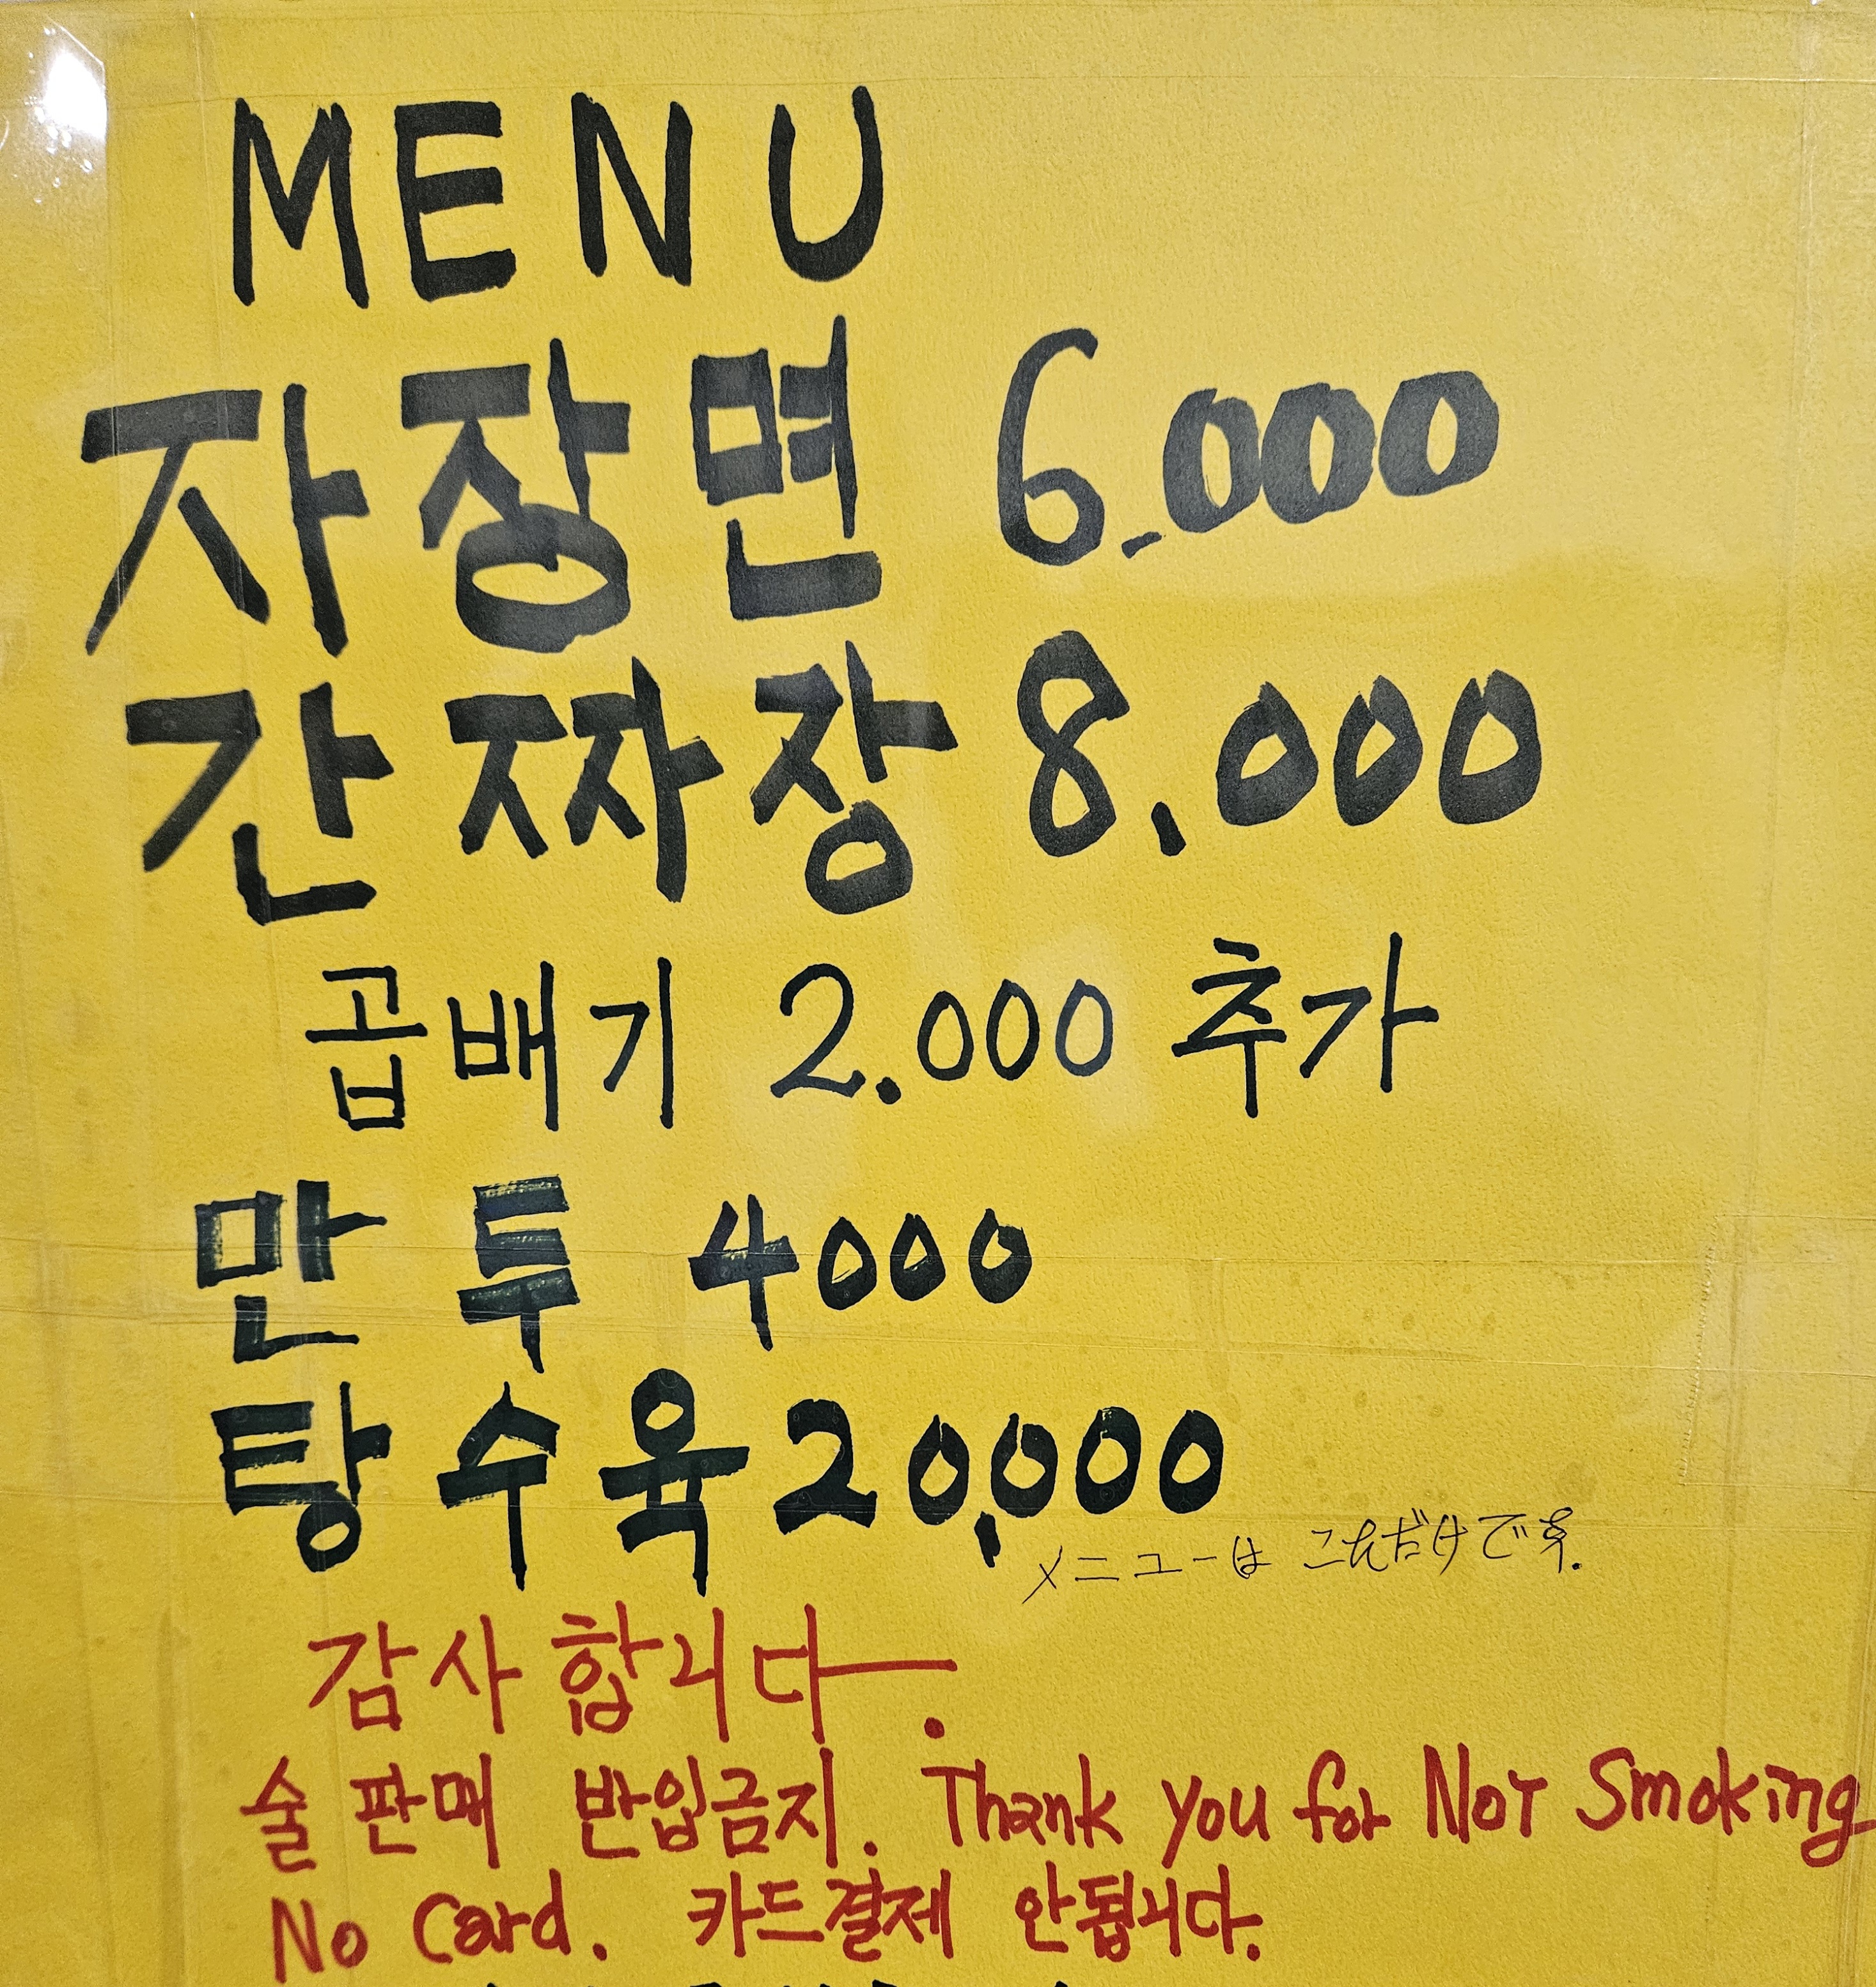 MENU
자장면 6.000
간짜장 8.000
곱배기 2.000 추가
만투 4000
탕수육 20,000
メニューは これだけです.
감사합니다.
술 판매 반입금지. Thank you for Not Smoking
No Card. 카드결제 안됩니다.